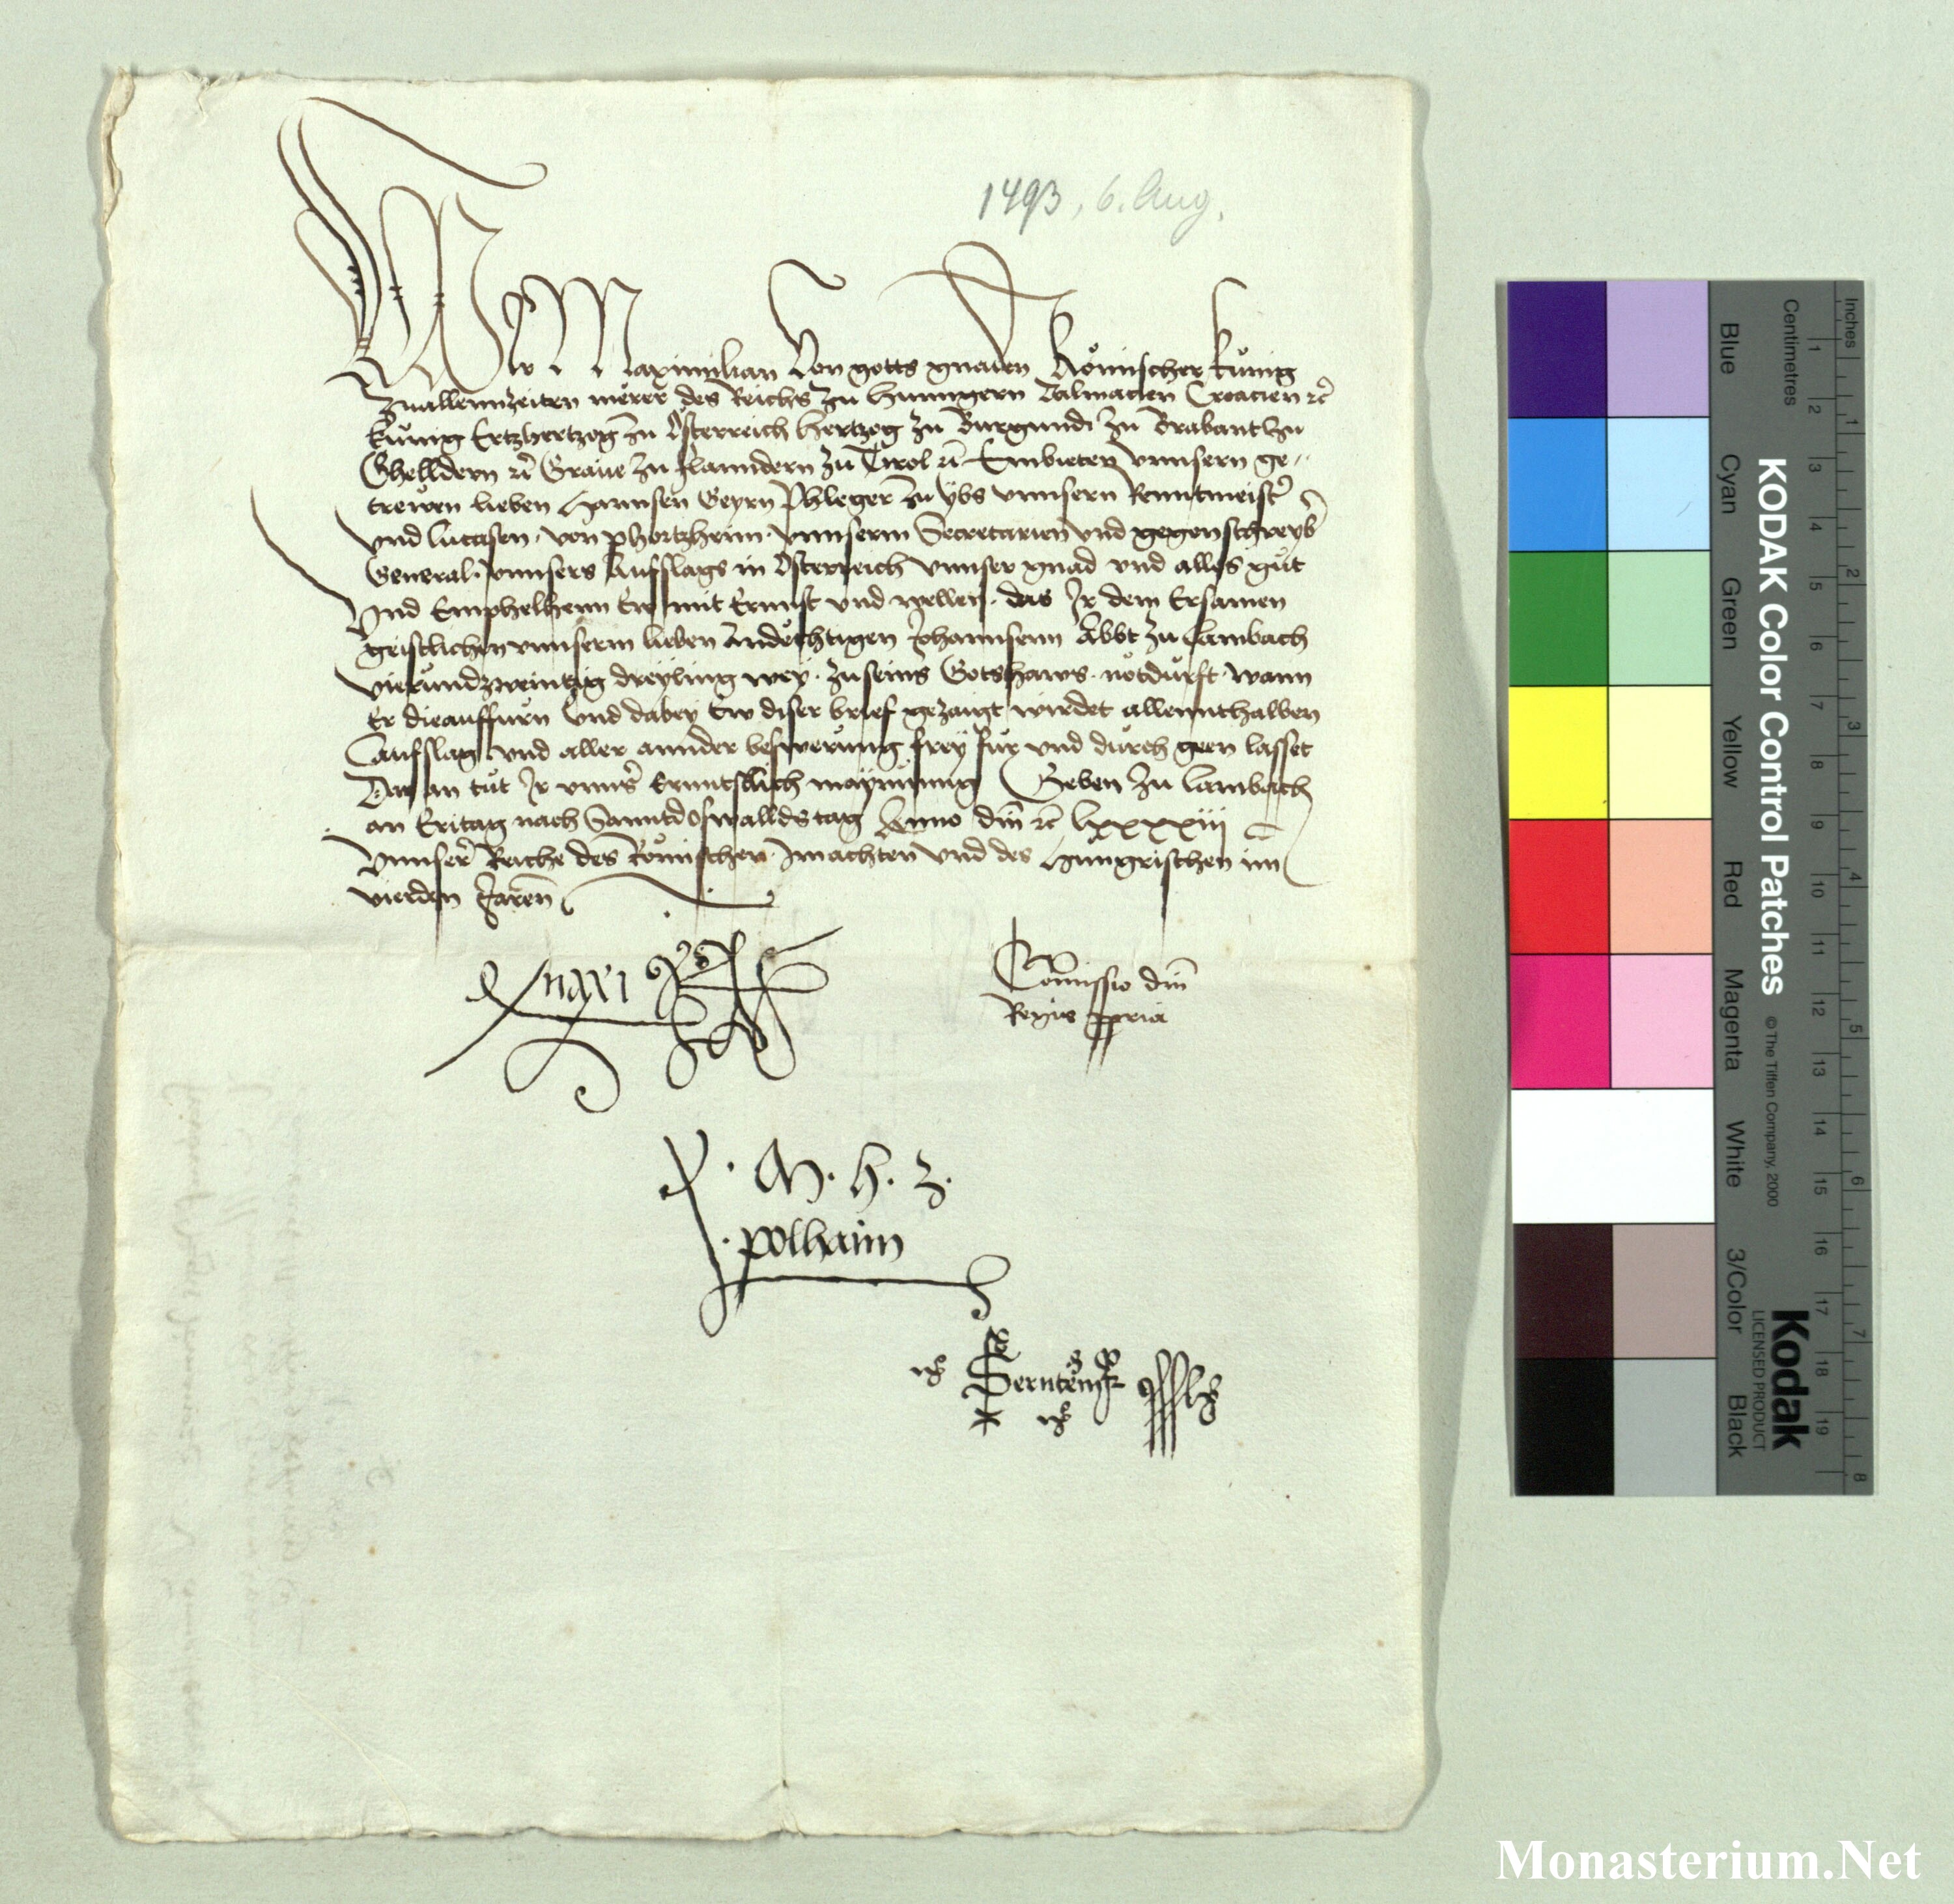 1493, 6. Aug.
Wir Maximilian Von gotts gnaden Römischer kunig
Zuallennzeiten merer des Reichs zu Hunngern Dalmacien Croacien rc
kunig Ertzhertzog zu Österreich Hertzog zu Burgundi zu Brabant zu
Ghelldern rc Graue zu Flanndern zu Tirol rc Embieten vnnsern ge-
trewen lieben Hannsen Geyrn Phleger zu ybs vnnsern Renntmeister
vnd Lucasen von phortzheim vnnserm Secretarien vnd gegenschreyber
General vnnsers Aufslags in Österreich vnnser gnad vnd alles gut
Vnd Emphelhenn Ew mit Ernnst vnd wellen das Ir dem Ersamen
geistlichen vnnserm lieben Andechtigen Johannsenn Abbt zu Lambach
vierundzweintzig dreyling wey zu seins Gotshaws notdurft wann
Er die auffurn vnd dabey Ew diser brief gezaigt wirdet allennthalben
aufslag vnd aller annder beswerung frey fur vnd durch geen lasset
Daran tut Ir vnns ernnstlich maynnung Geben zu Lambach
an Eritag nach Sannd Oswallds tag Anno dm rc lxxxxiii
Vnnser Reiche des Römischen Im achten vnd des Hungrischen im
vierden Jaren
Maxi
Comissio dm
Regis ppria
W. H. Z.
polhaim
Serntein
KODAK Color Control Patches
© The Tiffen Company, 2000
Kodak
LICENSED PRODUCT
Blue Cyan Green Yellow Red Magenta White 3/Color Black
Centimetres
1 2 3 4 5 6 7 8 9 10 11 12 13 14 15 16 17 18 19
Inches
1 2 3 4 5 6 7 8
Monasterium.Net